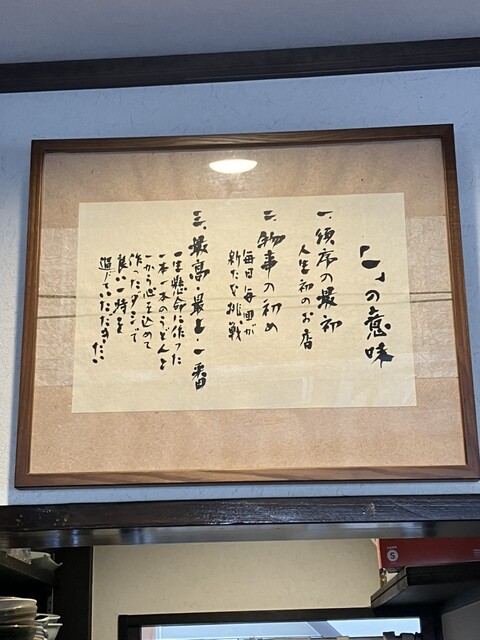 「一」の意味
一、順序の最初
人生初のお店
二、物事の初め
毎日毎回が
新たな挑戦
三、最高・最上・一番
一生懸命に作った
一本一本のうどんと
一から心を込めて
作ったダシで
良い一時を
過していただきたい
S